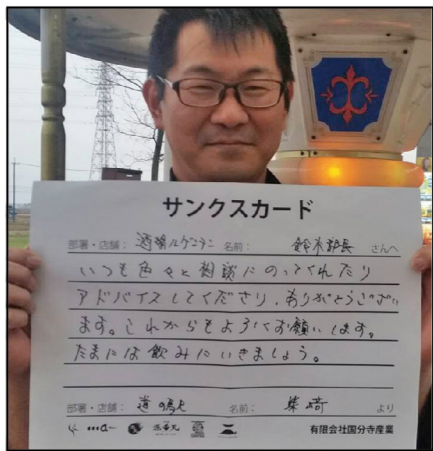 サンクスカード
部署・店舗: 酒場ルゲンテン 名前: 鈴木部長 さんへ
いつも色々と相談にのってくれたり
アドバイスしてくださり、ありがとうござい
ます。これからもよろしくお願いします。
たまには飲みにいきましょう。
部署・店舗: 名前: 柴崎 より
有限会社国分寺産業